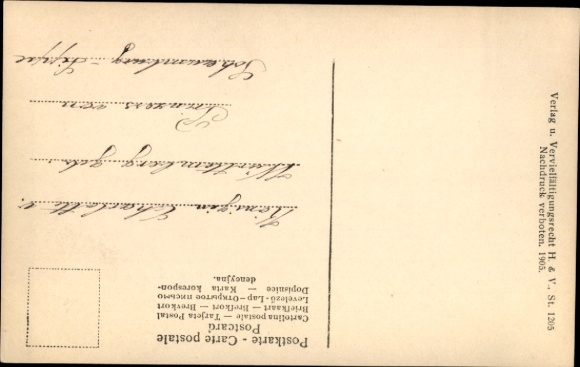 Postkarte - Carte postale
Postcard
Cartolina postale — Tarjeta Postal
Briefkaart — Brefkort — Brevkort
Levelező-Lap — Открытое письмо
Dopisnice — Karta korespon-
dencyjna.
Königin Charlotte v.
Württemberg geb.
Prinzess von
Schaumburg-Lippe
Verlag u. Vervielfältigungsrecht H. & V., St. 1205
Nachdruck verboten. 1905.